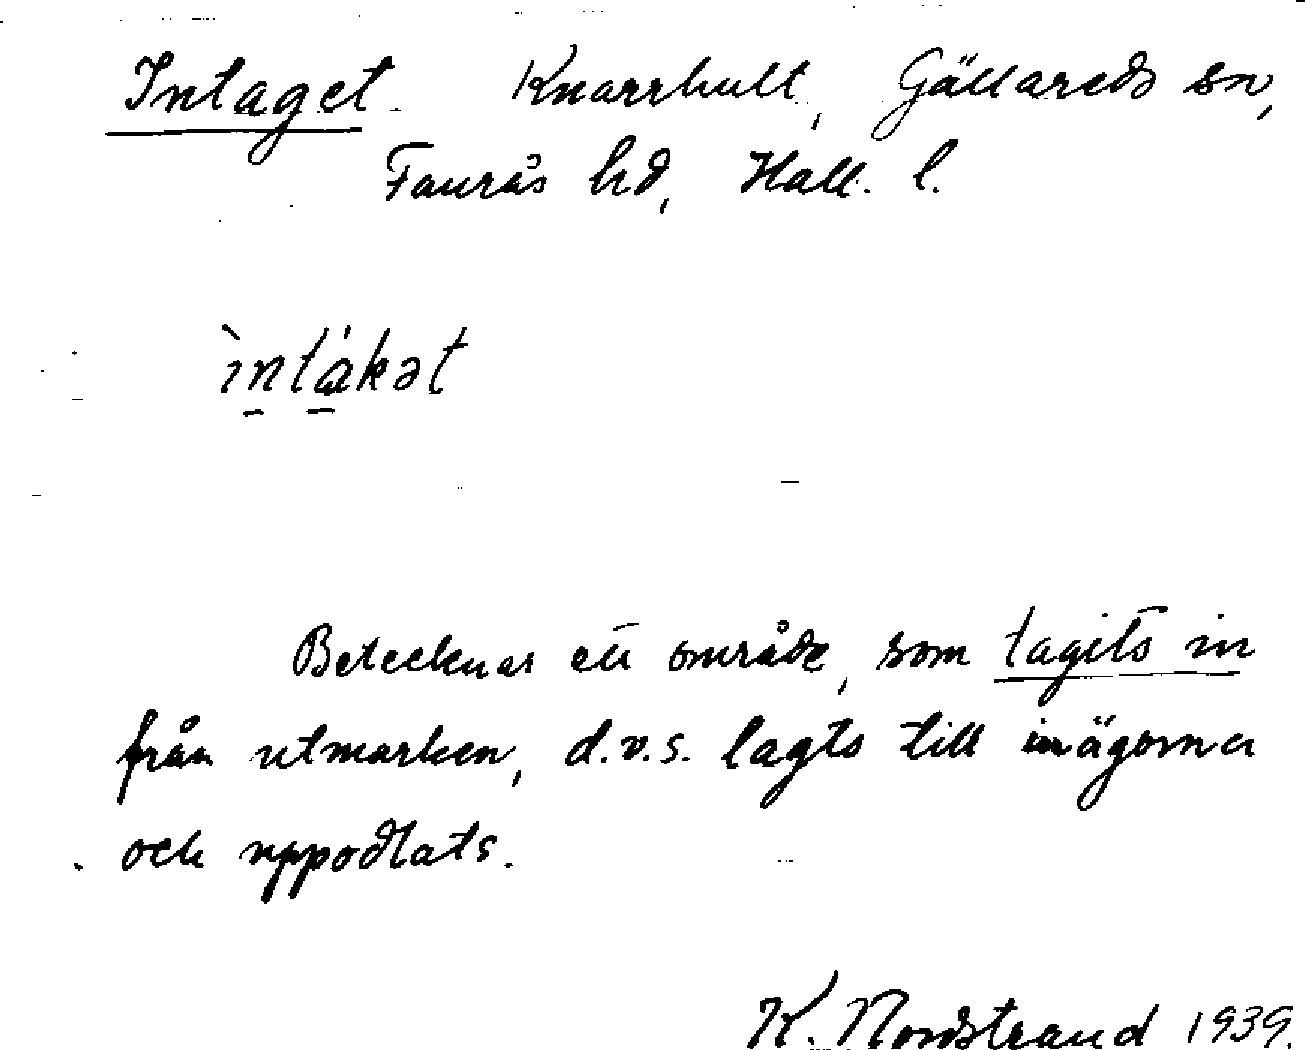 Intaget. Knarrhult, Gällareds sn,
Faurås hd, Hall. l.
ìntákət
Betecknar ett område, som tagits in
från utmarken, d.v.s. lagts till inägorna
och uppodlats.
K. Nordstrand 1939.